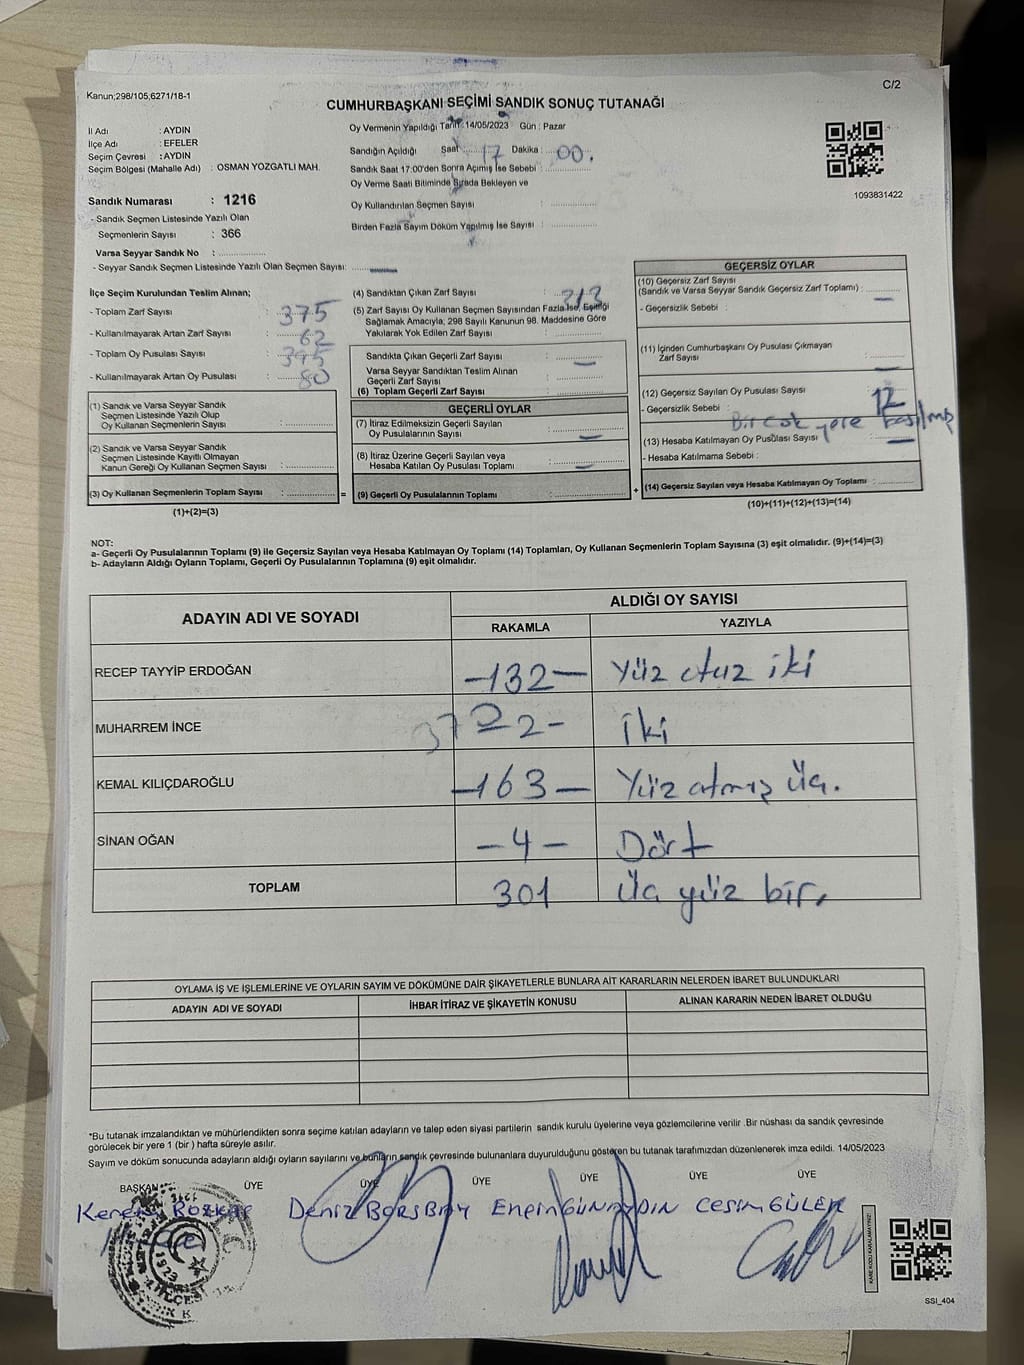 Kanun;298/105,6271/18-1
C/2
CUMHURBAŞKANI SEÇİMİ SANDIK SONUÇ TUTANAĞI
İl Adı : AYDIN
İlçe Adı : EFELER
Seçim Çevresi : AYDIN
Seçim Bölgesi (Mahalle Adı) : OSMAN YOZGATLI MAH.
Sandık Numarası : 1216
- Sandık Seçmen Listesinde Yazılı Olan
Seçmenlerin Sayısı : 366
Varsa Seyyar Sandık No :
- Seyyar Sandık Seçmen Listesinde Yazılı Olan Seçmen Sayısı:
Oy Vermenin Yapıldığı Tarih: 14/05/2023 Gün : Pazar
Sandığın Açıldığı Saat : 17 Dakika : 00.
Sandık Saat 17:00'den Sonra Açımış İse Sebebi :
Oy Verme Saati Bitiminde Sırada Bekleyen ve
Oy Kullandırılan Seçmen Sayısı :
Birden Fazla Sayım Döküm Yapılmış İse Sayısı :
1093831422
İlçe Seçim Kurulundan Teslim Alınan;
- Toplam Zarf Sayısı : 375
- Kullanılmayarak Artan Zarf Sayısı : 62
- Toplam Oy Pusulası Sayısı :
- Kullanılmayarak Artan Oy Pusulası : 80
(1) Sandık ve Varsa Seyyar Sandık
Seçmen Listesinde Yazılı Olup
Oy Kullanan Seçmenlerin Sayısı :
(2) Sandık ve Varsa Seyyar Sandık
Seçmen Listesinde Kayıtlı Olmayan
Kanun Gereği Oy Kullanan Seçmen Sayısı :
(3) Oy Kullanan Seçmenlerin Toplam Sayısı :
(1)+(2)=(3)
(4) Sandıktan Çıkan Zarf Sayısı : 313
(5) Zarf Sayısı Oy Kullanan Seçmen Sayısından Fazla İse, Eşitliği
Sağlamak Amacıyla; 298 Sayılı Kanunun 98. Maddesine Göre
Yakılarak Yok Edilen Zarf Sayısı :
Sandıkta Çıkan Geçerli Zarf Sayısı : —
Varsa Seyyar Sandıktan Teslim Alınan
Geçerli Zarf Sayısı :
(6) Toplam Geçerli Zarf Sayısı
GEÇERLİ OYLAR
(7) İtiraz Edilmeksizin Geçerli Sayılan
Oy Pusulalarının Sayısı : —
(8) İtiraz Üzerine Geçerli Sayılan veya
Hesaba Katılan Oy Pusulası Toplamı : —
= (9) Geçerli Oy Pusulalarının Toplamı :
GEÇERSİZ OYLAR
(10) Geçersiz Zarf Sayısı
(Sandık ve Varsa Seyyar Sandık Geçersiz Zarf Toplamı) : —
- Geçersizlik Sebebi :
(11) İçinden Cumhurbaşkanı Oy Pusulası Çıkmayan
Zarf Sayısı : —
(12) Geçersiz Sayılan Oy Pusulası Sayısı : 12
- Geçersizlik Sebebi : Bir çok yere basılmış
(13) Hesaba Katılmayan Oy Pusulası Sayısı : —
- Hesaba Katılmama Sebebi :
+ (14) Geçersiz Sayılan veya Hesaba Katılmayan Oy Toplamı :
(10)+(11)+(12)+(13)=(14)
NOT:
a- Geçerli Oy Pusulalarının Toplamı (9) ile Geçersiz Sayılan veya Hesaba Katılmayan Oy Toplamı (14) Toplamları, Oy Kullanan Seçmenlerin Toplam Sayısına (3) eşit olmalıdır. (9)+(14)=(3)
b- Adayların Aldığı Oyların Toplamı, Geçerli Oy Pusulalarının Toplamına (9) eşit olmalıdır.
ADAYIN ADI VE SOYADI
ALDIĞI OY SAYISI
RAKAMLA YAZIYLA
RECEP TAYYİP ERDOĞAN -132- Yüz otuz iki
MUHARREM İNCE 2- İki
KEMAL KILIÇDAROĞLU -163- Yüz atmış üç.
SİNAN OĞAN -4- Dört
TOPLAM 301 Üç yüz bir.
OYLAMA İŞ VE İŞLEMLERİNE VE OYLARIN SAYIM VE DÖKÜMÜNE DAİR ŞİKAYETLERLE BUNLARA AİT KARARLARIN NELERDEN İBARET BULUNDUKLARI
ADAYIN ADI VE SOYADI İHBAR İTİRAZ VE ŞİKAYETİN KONUSU ALINAN KARARIN NEDEN İBARET OLDUĞU
*Bu tutanak imzalandıktan ve mühürlendikten sonra seçime katılan adayların ve talep eden siyasi partilerin sandık kurulu üyelerine veya gözlemcilerine verilir .Bir nüshası da sandık çevresinde
görülecek bir yere 1 (bir ) hafta süreyle asılır.
Sayım ve döküm sonucunda adayların aldığı oyların sayılarını ve bunların sandık çevresinde bulunanlara duyurulduğunu gösteren bu tutanak tarafımızdan düzenlenerek imza edildi. 14/05/2023
BAŞKAN ÜYE ÜYE ÜYE ÜYE ÜYE ÜYE
DENİZ BORSBAY ENGİN GÜNAYDIN CESİM GÜLER
SSI_404